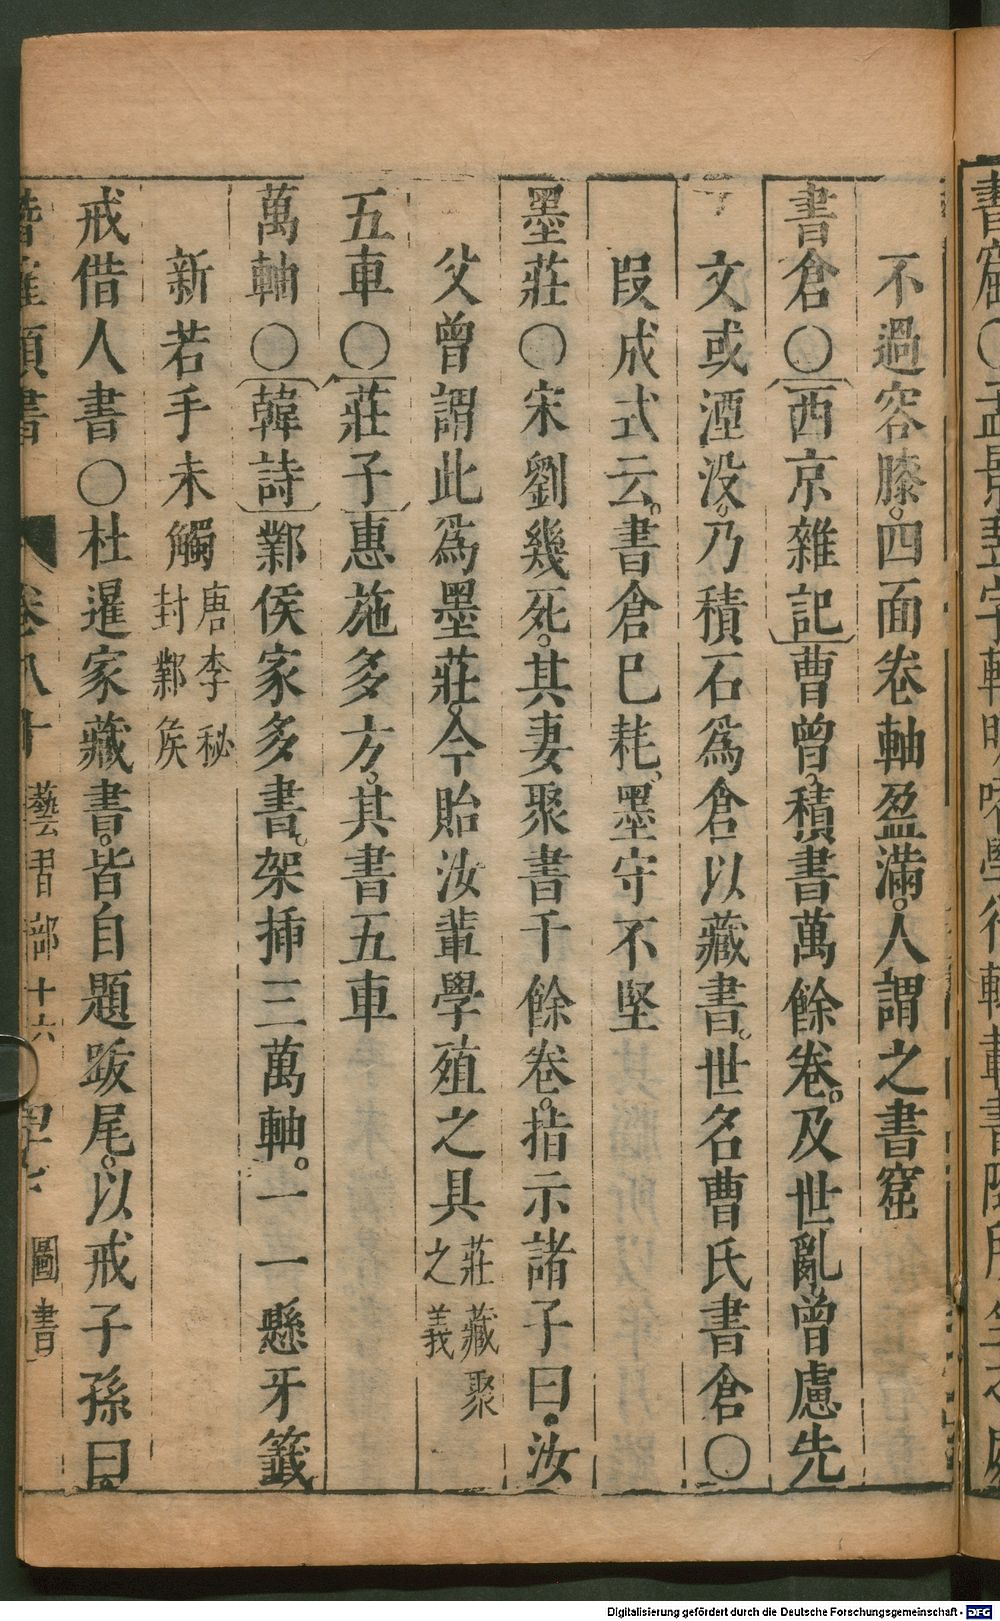 書窟〇孟景翌字輔明
不過容膝。四面卷軸盈滿。人謂之書窟
書倉〇〔西京雜記〕曹曾。積書萬餘卷。及世亂曾慮先
文或湮没。乃積石爲倉以藏書。世名曹氏書倉〇
段成式云。書倉巳耗。墨守不堅
墨莊〇宋劉幾死。其妻聚書千餘卷。指示諸子曰。汝
父曾謂此爲墨莊。今貽汝輩學殖之具莊藏聚之義
五車〇〔莊子〕惠施多方。其書五車
萬軸〇〔韓詩〕鄴侯家多書。架揷三萬軸。一一懸牙籤
新若手未觸唐李秘封鄴矦
戒借人書〇杜暹家藏書。皆自題跋尾。以戒子孫曰。
潛確類書 卷八十 藝習部十六 圖書
Digitalisierung gefördert durch die Deutsche Forschungsgemeinschaft - DFG